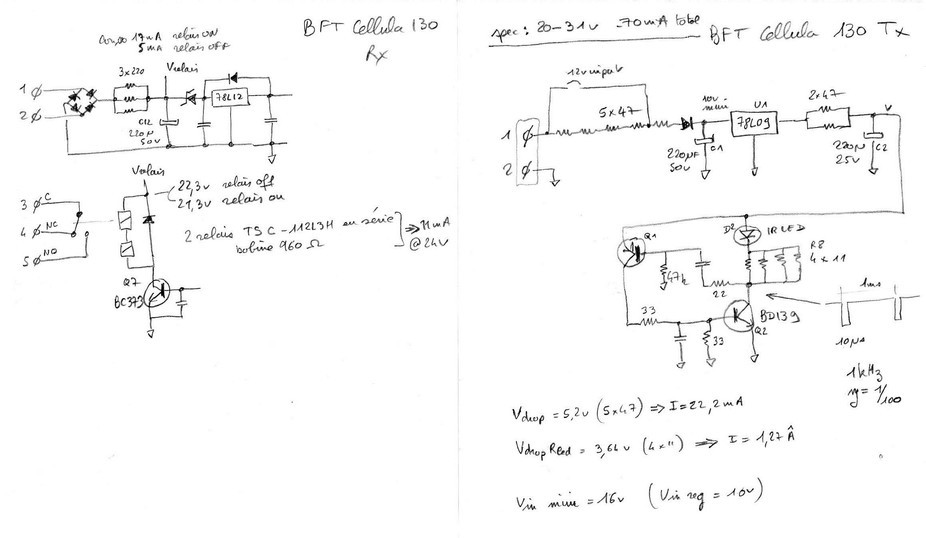 BFT Cellula 130
Rx
17mA relais ON
5mA relais OFF
Vrelais
3x220
1
2
78L12
C12
220µ
50v
Vrelais
22,3v relais off
21,3v relais on
3 C
4 NC
5 NO
2 relais TSC-112L3H en série
bobine 960 Ω
⇒ 11mA
@ 24V
Q7
BC373
spec: 20-31v 70mA total
BFT Cellula 130 Tx
12v input
5x47
10v mini
U1
78L09
2x47
V
1
2
220µF
50v
C1
220µ
25v
C2
Q1
D2
IR LED
R8
4x11
47k
22
33
33
BD139
Q2
1ms
10µs
1kHz
η = 1/100
Vdrop = 5,2v (5x47) ⇒ I = 22,2mA
Vdrop Rled = 3,64v (4x11) ⇒ I = 1,27Â
Vin mini = 16v (Vin reg = 10v)